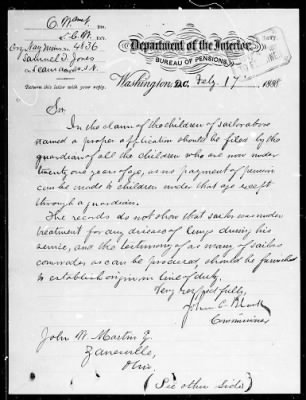 Department of the Interior,
BUREAU OF PENSIONS,
Washington, D.C. Feby. 17 188
Navy 4136
Samuel D. Jones
Seaman U.S.N.
Return this letter with your reply.
Sir
In the claim of the children of sailor above
named a proper application should be filed by the
guardian of all the children who are now under
twenty one years of age, as no payment of pension
can be made to children under that age except
through a guardian.
The records do not show that sailor was under
treatment for any disease of lungs during his
service, and the testimony of as many of sailors
comrades as can be produced, should be furnished
to establish origin in line of duty.
Very respectfully,
John C. Black
Commissioner
John W. Martin
Zanesville,
Ohio.
(See other side)